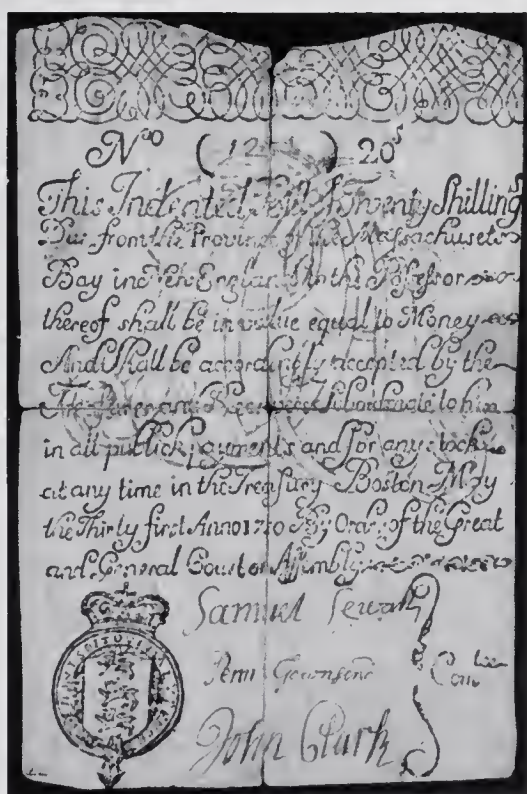 Nᵒ ( 12 ) 20ˢ
This Indented Bill of Twenty Shillings
Due from the Province of the Massachusets
Bay in New England to the Possessor
thereof shall be in value equal to Money
And shall be accordingly accepted by the
Treasurer and Receivers Subordinate to him
in all publick payments and for any stock
at any time in the Treasury Boston May
the Thirty first Anno 1710 By Order of the Great
and General Court or Assembly
Samuel Sewall
Penn Townsend
Comᵗᵉᵉ
John Clark